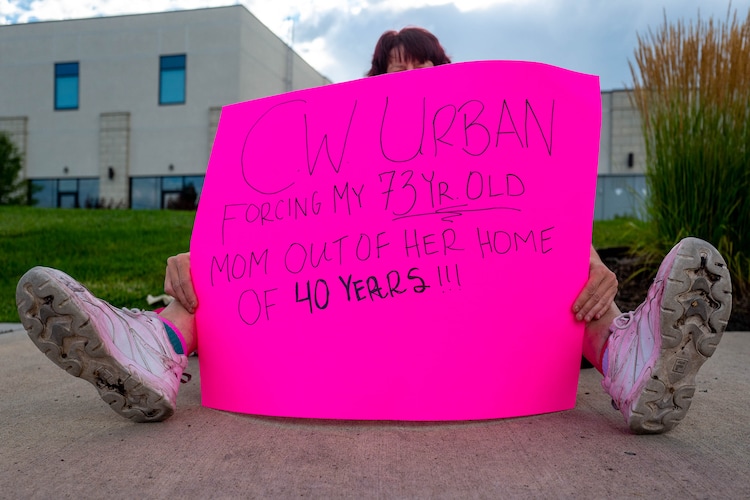 CW URBAN
FORCING MY 73 YR. OLD
MOM OUT OF HER HOME
OF 40 YEARS!!!